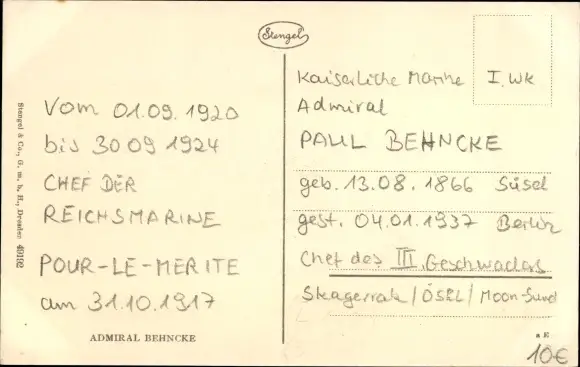 Stengel
Vom 01.09.1920
bis 30 09 1924
CHEF DER
REICHSMARINE
POUR-LE-MERITE
am 31.10.1917
ADMIRAL BEHNCKE
Stengel & Co., G. m. b. H., Dresden 49192
Kaiserliche Marine I. WK
Admiral
PAUL BEHNCKE
geb. 13.08. 1866 Süsel
gest. 04.01.1937 Berlin
Chef des III. Geschwaders
Skagerrak / ÖSEL / Moon-Sund
a E
10€